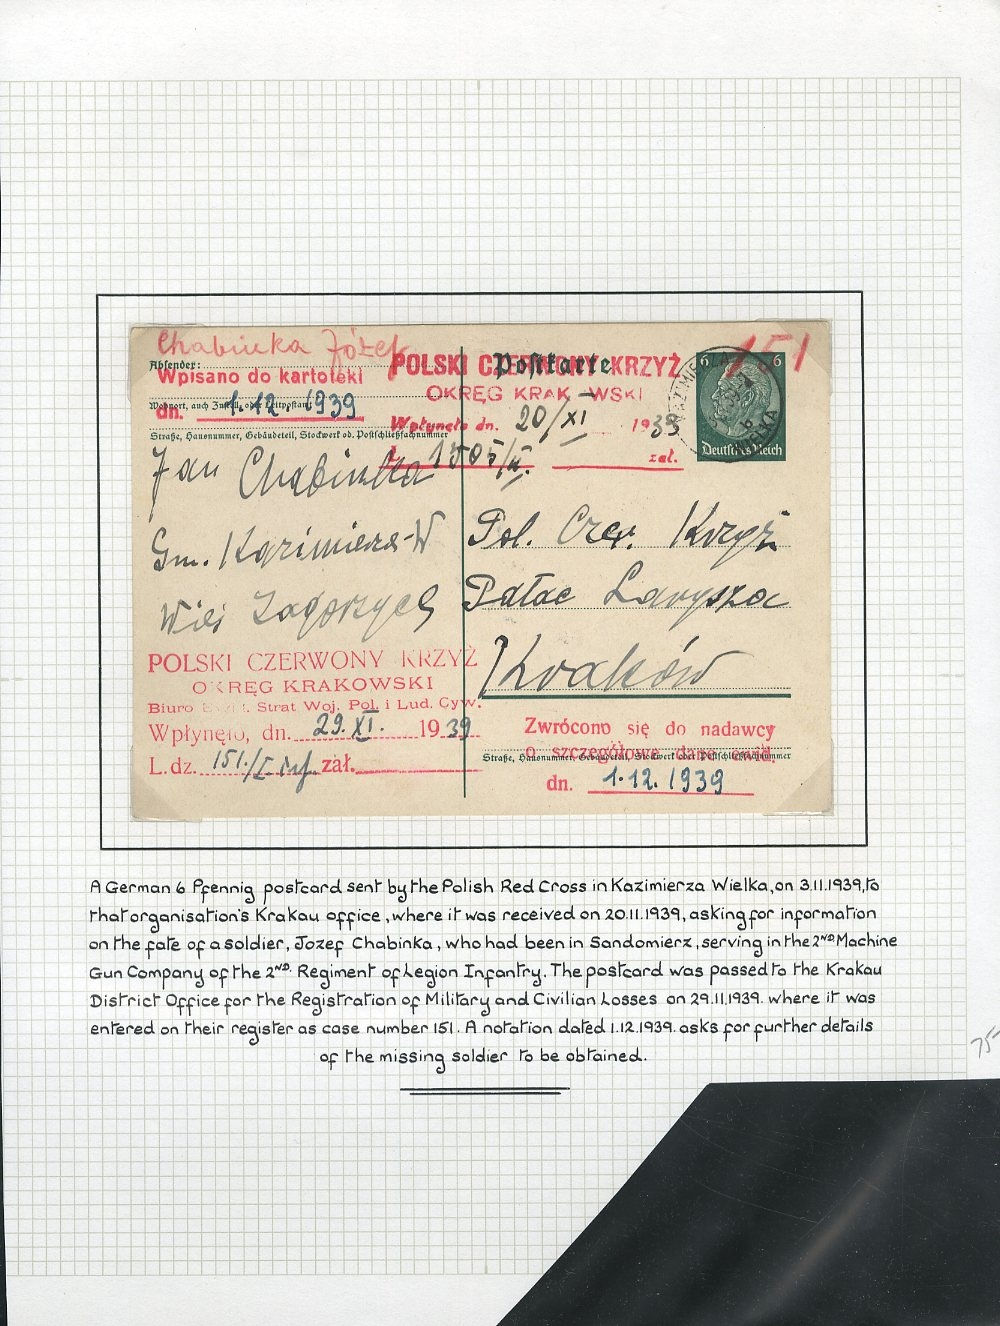 Chabinka Józef
151
Absender:
Wpisano do kartoteki
Wohnort, auch Zustell- od. Leitpostamt
dn. 1.12 1939
Straße, Hausnummer, Gebäudeteil, Stockwerk od. Postschließfachnummer
Postkarte
POLSKI CZERWONY KRZYŻ
OKRĘG KRAK WSKI
Wpłynęło dn. 20/XI 1939
L. 1505/II. zał.
6 6
Deutsches Reich
KAZIMIERZA WIELKA
Jan Chabinka
Gm. Kazimierza-W
Wieś Zagorzyce
Pol. Czer. Krzyż
Pałac Larysza
Kraków
POLSKI CZERWONY KRZYŻ
OKRĘG KRAKOWSKI
Biuro Strat Woj. Pol. i Lud. Cyw.
Wpłynęło, dn. 29.XI. 1939
L. dz. 151/I inf zał.
Zwrócono się do nadawcy
o szczegółowe dane ewid.
Straße, Hausnummer, Gebäudeteil, Stockwerk oder Postschließfachnummer
dn. 1.12.1939
A German 6 Pfennig postcard sent by the Polish Red Cross in Kazimierza Wielka, on 3.11.1939, to
that organisation's Krakau office, where it was received on 20.11.1939, asking for information
on the fate of a soldier, Jozef Chabinka, who had been in Sandomierz, serving in the 2ND Machine
Gun Company of the 2ND. Regiment of Legion Infantry. The postcard was passed to the Krakau
District Office for the Registration of Military and Civilian Losses on 29.11.1939. where it was
entered on their register as case number 151. A notation dated 1.12.1939. asks for further details
of the missing soldier to be obtained.
75-